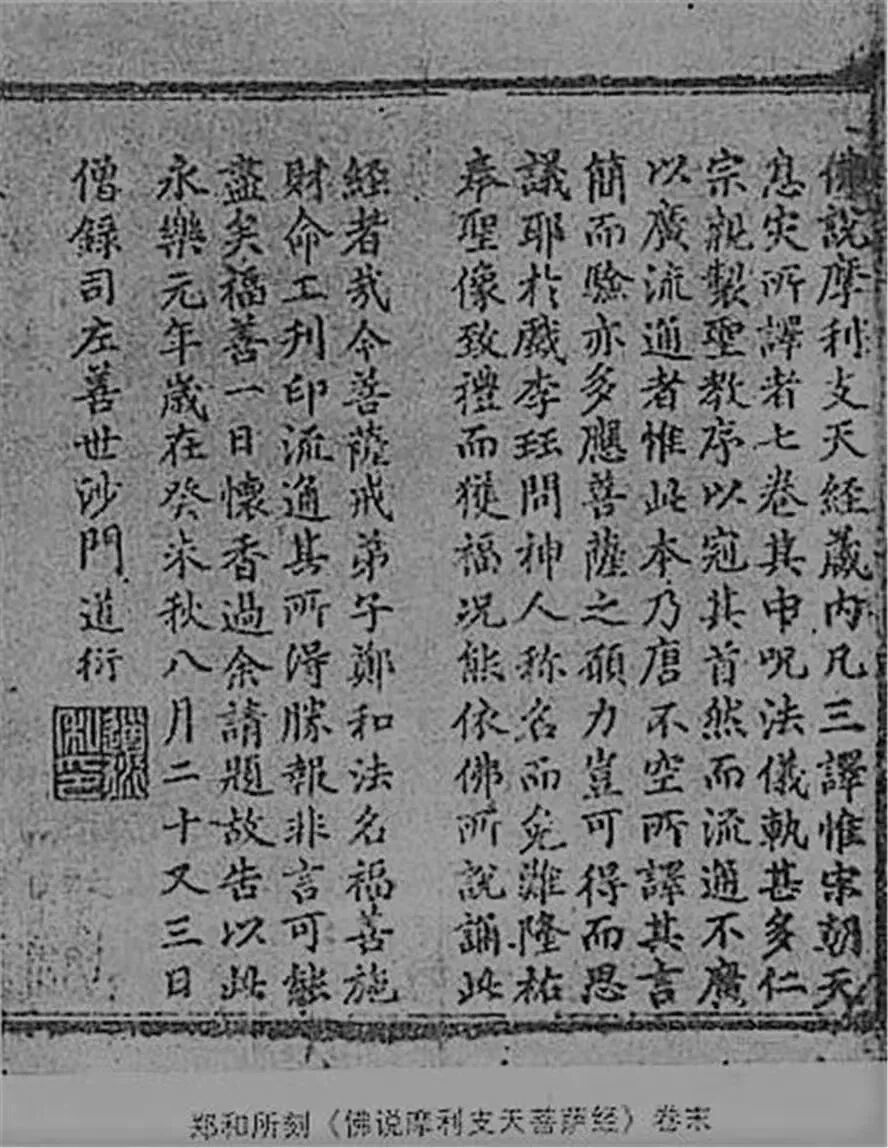 佛說摩利支天經藏內凡三譯惟宋朝天
息灾所譯者七卷其中呪法儀軌甚多仁
宗親製聖教序以冠其首然而流通不廣
以廣流通者惟此本乃唐不空所譯其言
簡而驗亦多應菩薩之願力豈可得而思
議耶於戲李珏問神人称名而免難隆祐
奉聖像致禮而獲福况能依佛所說誦此
經者㢤今菩薩戒弟子鄭和法名福善施
財命工刊印流通其所得勝報非言可能
盡矣福善一日懷香過余請題故告以此
永樂元年歲在癸未秋八月二十又三日
僧録司左善世沙門道衍
郑和所刻《佛说摩利支天菩萨经》卷末